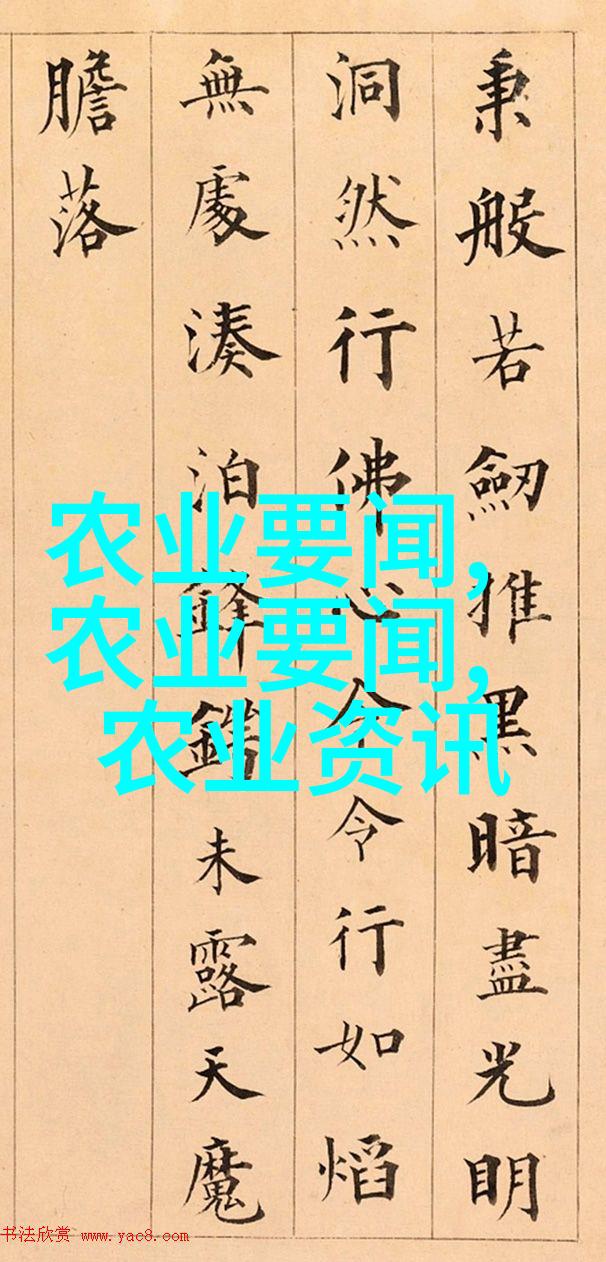 秉般若劒推黑暗盡光明
洞然行佛心令令行如熖
無處湊泊鋒鍔未露天魔
膽落
农业要闻,
农业要闻,
农业资讯
书法欣赏 www.yac8.com